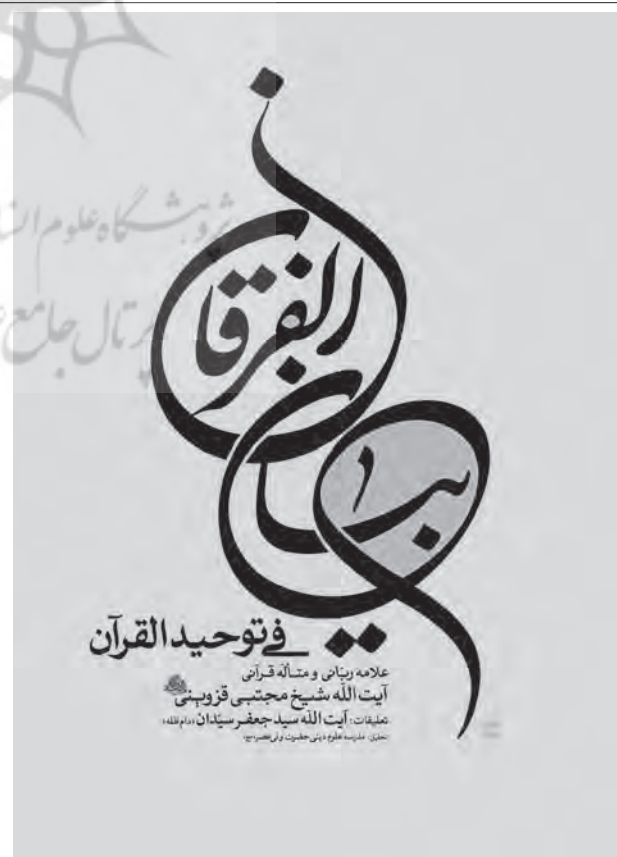 پژوهشگاه علوم انسا
پرتال جامع ع
بیان الفرقان
في توحيد القرآن
علامه ربّانی و متألّه قرآنی
آیت اللّه شیخ مجتبی قزوینی
تعلیقات: آیت اللّه سید جعفر سیّدان (دام ظلّه)
تحقیق: مدرسه علوم دینی حضرت ولی عصر (عج)